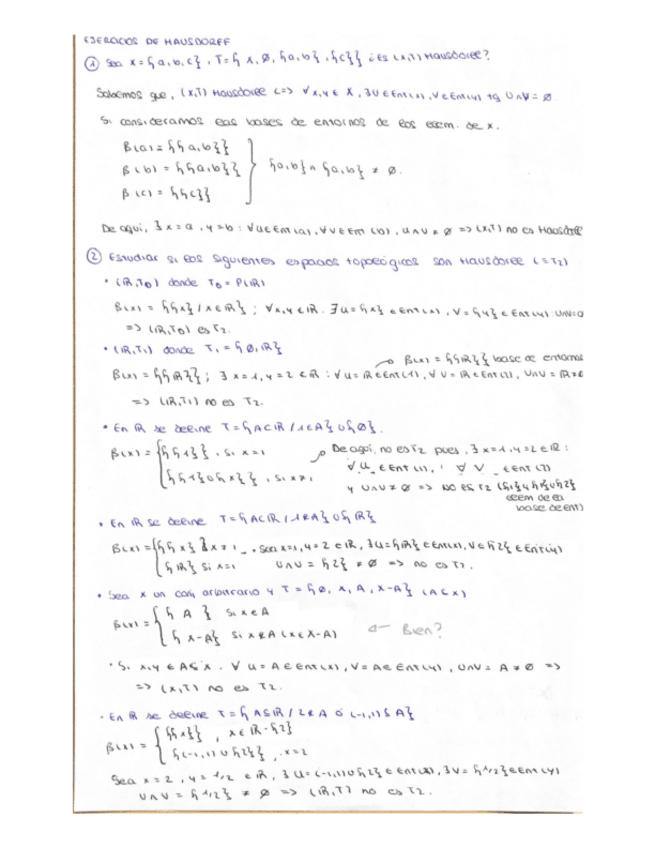 EJERCICIOS DE HAUSDORFF
① Sea X={a,b,c}, T={X, Ø, {a,b}, {c}} ¿Es (X,T) Hausdorff?
Sabemos que, (X,T) Hausdorff <=> ∀x,y ∈ X, ∃U∈Ent(x), V∈Ent(y) tq U∩V = Ø
Si consideramos las bases de entornos de los elem. de X.
B(a) = {{a,b}}
B(b) = {{a,b}} } {a,b}∩{a,b} ≠ Ø.
B(c) = {{c}}
De aquí, ∃x=a, y=b : ∀U∈Ent(a), ∀V∈Ent(b), U∩V ≠ Ø => (X,T) no es Hausdorff
② Estudiar si los siguientes espacios topológicos son Hausdorff (=T2)
• (ℝ,TD) donde TD = P(ℝ)
B(x) = {{x}/x∈ℝ}; ∀x,y∈ℝ. ∃U={x}∈Ent(x), V={y}∈Ent(y): U∩V=Ø
=> (ℝ,TD) es T2.
• (ℝ,T1) donde T1 = {Ø,ℝ}
B(x) = {{ℝ}} base de entornos
B(x) = {{ℝ}}; ∃x=1, y=2 ∈ℝ : ∀U=ℝ∈Ent(1), ∀V=ℝ∈Ent(2), U∩V=ℝ≠
=> (ℝ,T1) no es T2.
• En ℝ se define T={A⊂ℝ/1∈A}∪{Ø}.
B(x) = { {{1}}, si x=1 De aquí, no es T2 pues, ∃x=1, y=2∈ℝ:
{{1}∪{x}}, si x≠1 ∀U ∈Ent(1), ∀V ∈Ent(2)
y U∩V≠Ø => no es T2 ({1} y {1}∪{2}
elem de la
base de ent)
• En ℝ se define T={A⊂ℝ/1∉A}∪{ℝ}
B(x) = { {{x}} x≠1. Sea x=1, y=2∈ℝ, ∃U={ℝ}∈Ent(x), V={2}∈Ent(y)
{ℝ} si x=1 U∩V={2} ≠ Ø => no es T2.
• Sea X un conj arbitrario y T={Ø, X, A, X-A} (A⊂X)
B(x) = { {A} si x∈A
{X-A} si x∉A (x∈X-A) ← Bien?
• Si x,y ∈A⊆X. ∀U=A∈Ent(x), V=A∈Ent(y), U∩V=A≠Ø =>
=> (X,T) no es T2.
• En ℝ se define T={A⊆ℝ/2∉A ó (-1,1)⊆A}
B(x) = { {{x}}, x∈ℝ-{2}
{(-1,1)∪{2}}, x=2
Sea x=2, y=1/2 ∈ℝ, ∃U=(-1,1)∪{2}∈Ent(x), ∃V={1/2}∈Ent(y)
U∩V={1/2} ≠ Ø => (ℝ,T) no es T2.